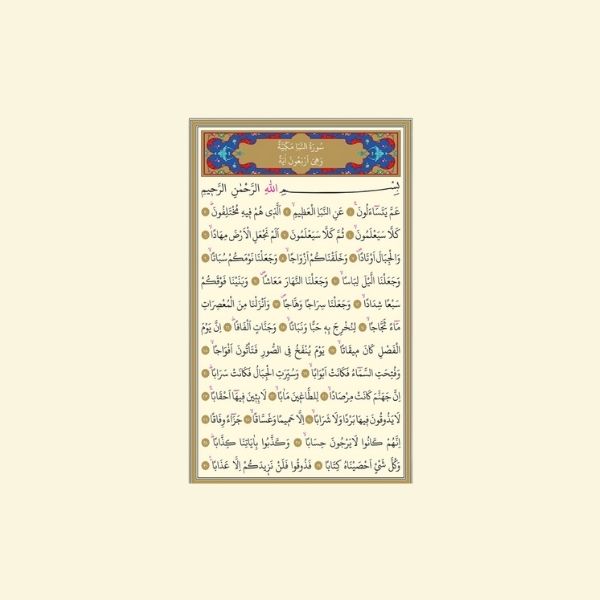 سُورَةُ النَّبَأِ مَكِّيَّةٌ
وَهِيَ اَرْبَعُونَ اٰيَةً
بِسْمِ اللّٰهِ الرَّحْمٰنِ الرَّحِيمِ
عَمَّ يَتَسَٓاءَلُونَۚ ﴿١﴾ عَنِ النَّبَأِ الْعَظِيمِۙ ﴿٢﴾ اَلَّذِي هُمْ فِيهِ مُخْتَلِفُونَۜ ﴿٣﴾
كَلَّا سَيَعْلَمُونَۙ ﴿٤﴾ ثُمَّ كَلَّا سَيَعْلَمُونَ ﴿٥﴾ اَلَمْ نَجْعَلِ الْاَرْضَ مِهَادًاۙ ﴿٦﴾
وَالْجِبَالَ اَوْتَادًاۖ ﴿٧﴾ وَخَلَقْنَاكُمْ اَزْوَاجًاۙ ﴿٨﴾ وَجَعَلْنَا نَوْمَكُمْ سُبَاتًاۙ ﴿٩﴾
وَجَعَلْنَا الَّيْلَ لِبَاسًاۙ ﴿١٠﴾ وَجَعَلْنَا النَّهَارَ مَعَاشًاۖ ﴿١١﴾ وَبَنَيْنَا فَوْقَكُمْ
سَبْعًا شِدَادًاۙ ﴿١٢﴾ وَجَعَلْنَا سِرَاجًا وَهَّاجًاۖ ﴿١٣﴾ وَاَنْزَلْنَا مِنَ الْمُعْصِرَاتِ
مَٓاءً ثَجَّاجًاۙ ﴿١٤﴾ لِنُخْرِجَ بِهِ حَبًّا وَنَبَاتًاۙ ﴿١٥﴾ وَجَنَّاتٍ اَلْفَافًاۜ ﴿١٦﴾ اِنَّ يَوْمَ
الْفَصْلِ كَانَ مِيقَاتًاۙ ﴿١٧﴾ يَوْمَ يُنْفَخُ فِي الصُّورِ فَتَأْتُونَ اَفْوَاجًاۙ ﴿١٨﴾
وَفُتِحَتِ السَّمَٓاءُ فَكَانَتْ اَبْوَابًاۙ ﴿١٩﴾ وَسُيِّرَتِ الْجِبَالُ فَكَانَتْ سَرَابًاۜ ﴿٢٠﴾
اِنَّ جَهَنَّمَ كَانَتْ مِرْصَادًاۙ ﴿٢١﴾ لِلطَّاغِينَ مَاٰبًاۙ ﴿٢٢﴾ لَابِثِينَ فِيهَٓا اَحْقَابًاۚ ﴿٢٣﴾
لَا يَذُوقُونَ فِيهَا بَرْدًا وَلَا شَرَابًاۙ ﴿٢٤﴾ اِلَّا حَمِيمًا وَغَسَّاقًاۙ ﴿٢٥﴾ جَزَٓاءً وِفَاقًاۜ ﴿٢٦﴾
اِنَّهُمْ كَانُوا لَا يَرْجُونَ حِسَابًاۙ ﴿٢٧﴾ وَكَذَّبُوا بِاٰيَاتِنَا كِذَّابًاۜ ﴿٢٨﴾
وَكُلَّ شَيْءٍ اَحْصَيْنَاهُ كِتَابًاۙ ﴿٢٩﴾ فَذُوقُوا فَلَنْ نَزِيدَكُمْ اِلَّا عَذَابًا۟ ﴿٣٠﴾